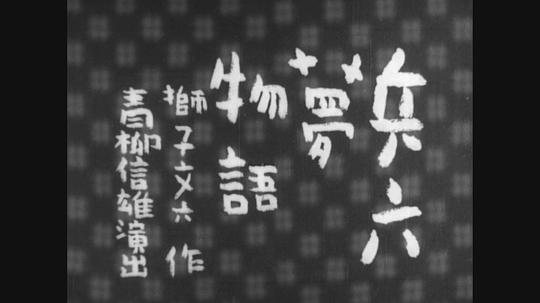 兵六
夢
物語
獅子文六 作
青柳信雄演出